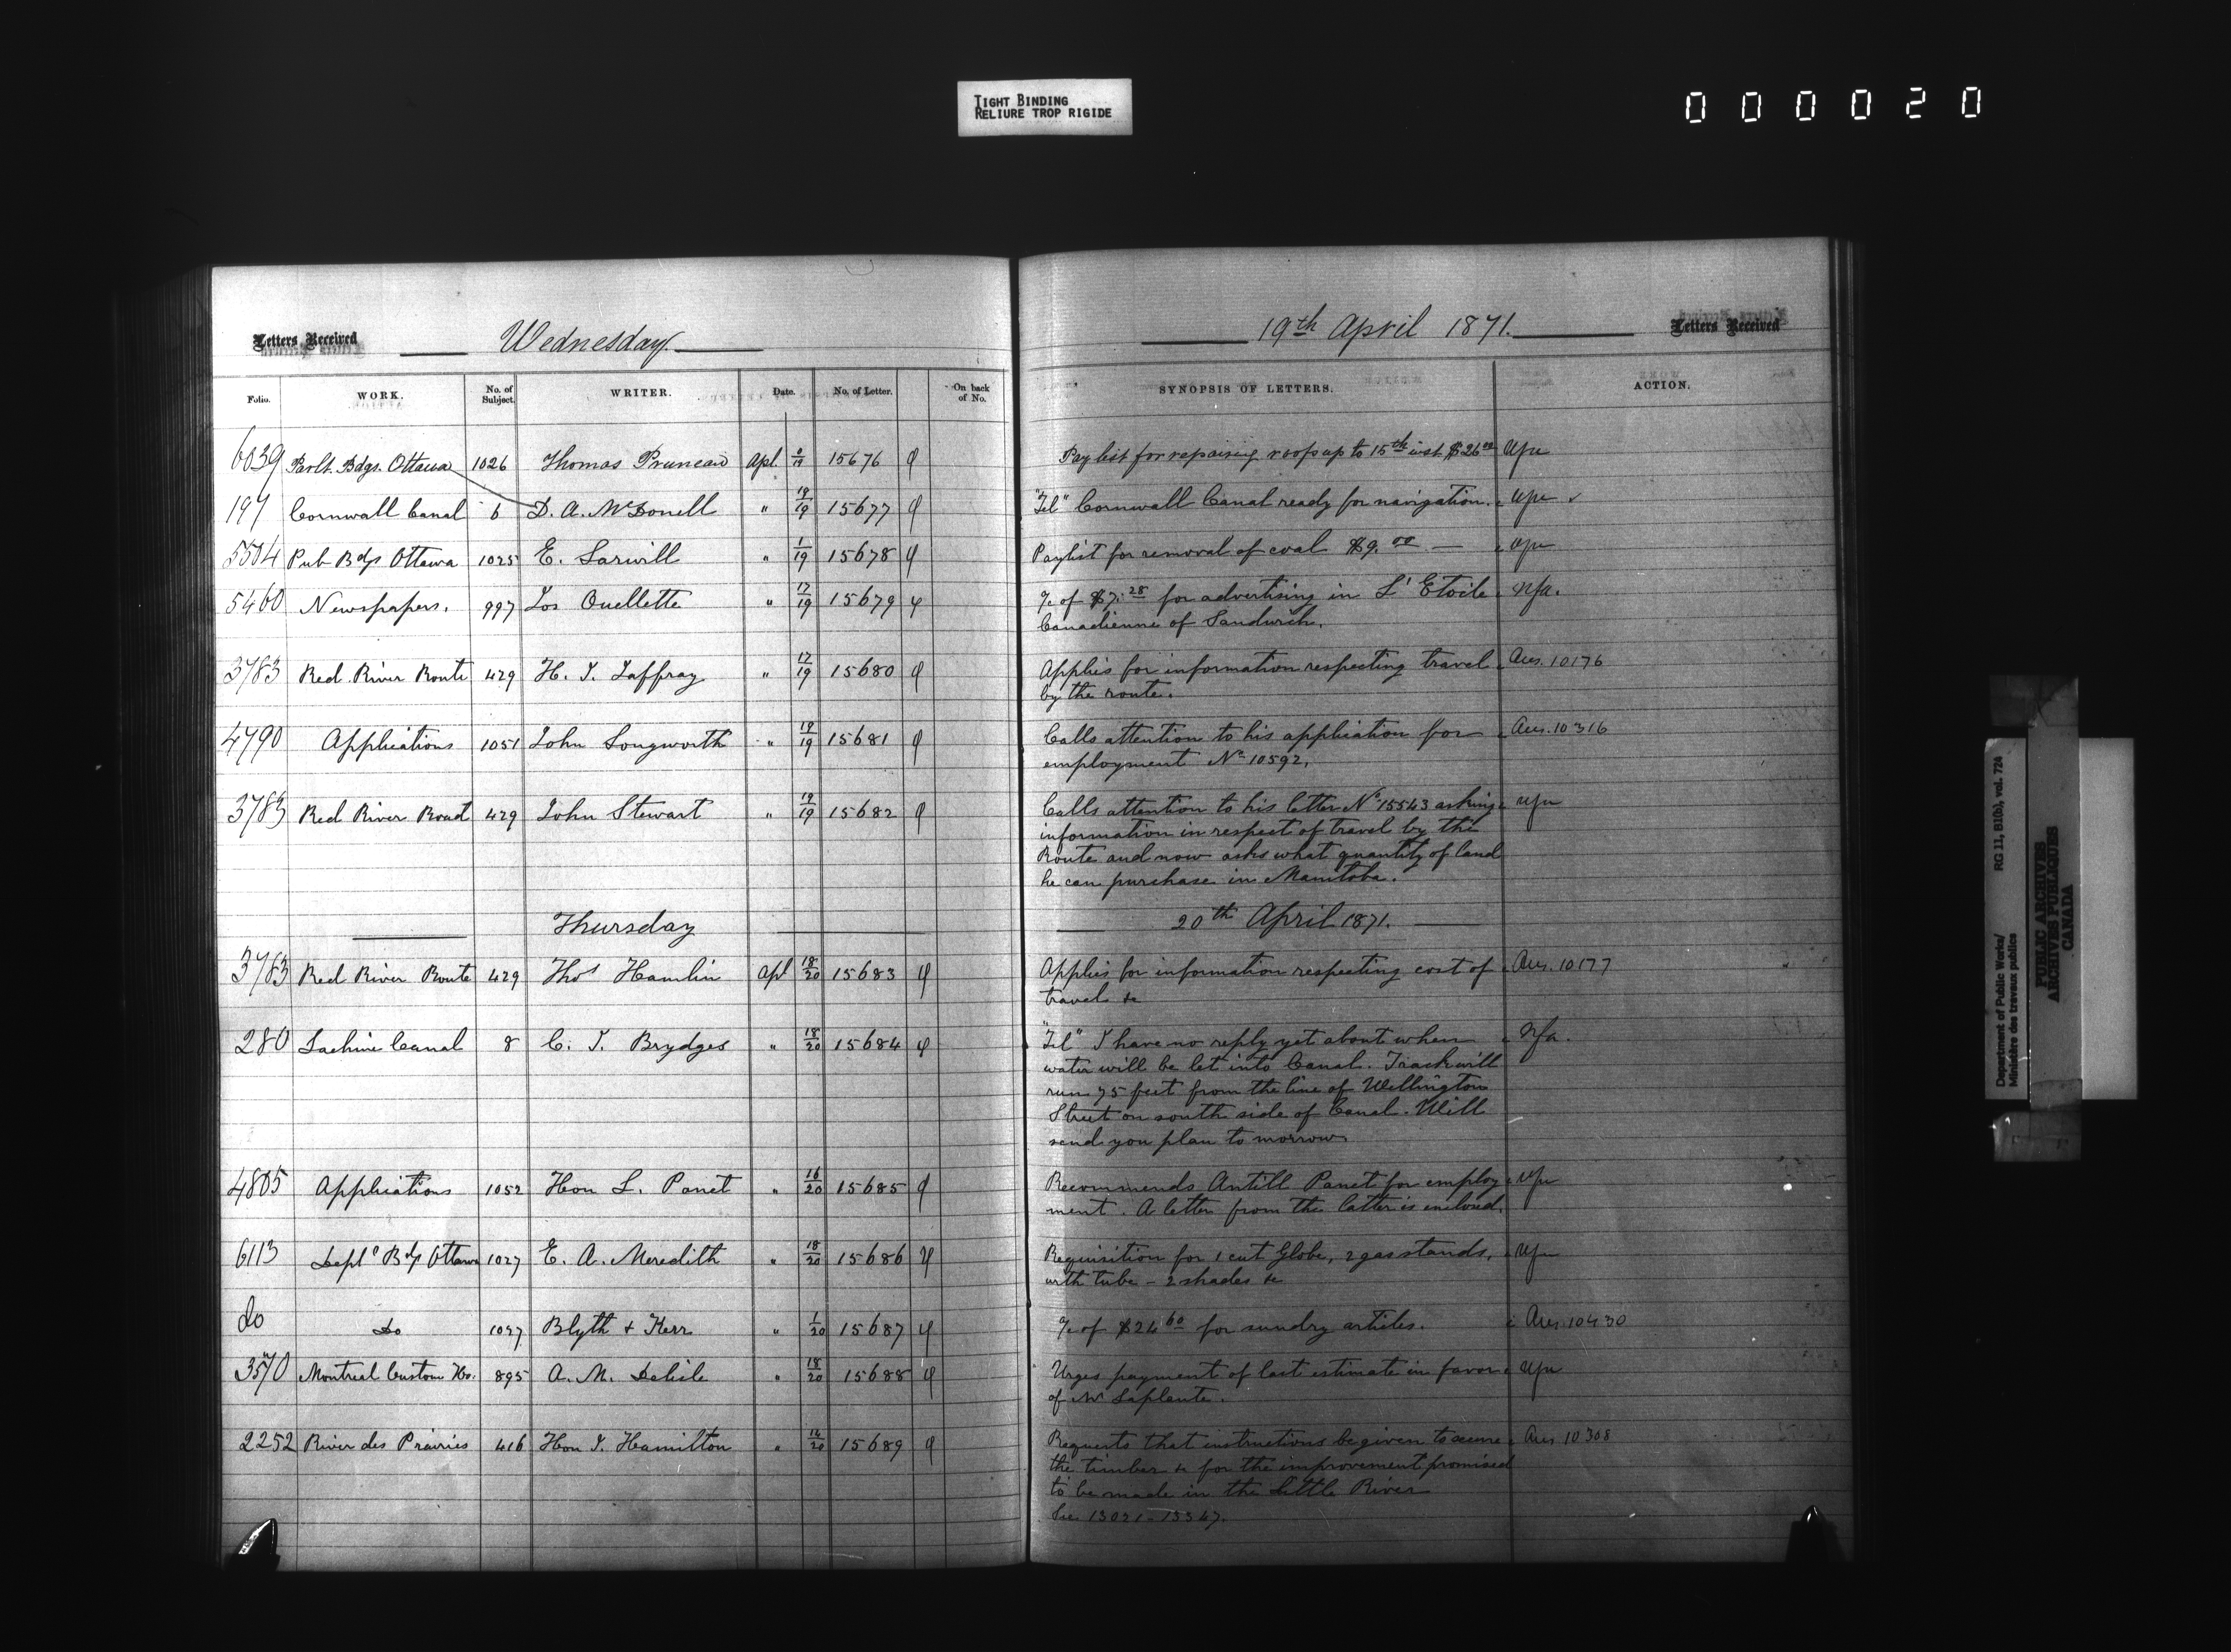 TIGHT BINDING
RELIURE TROP RIGIDE
000020
Letters Received Wednesday 19th April 1871. Letters Received
Folio. WORK. No. of Subject. WRITER. Date. No. of Letter. On back of No. SYNOPSIS OF LETTERS. ACTION.
6039 Parlt. Bdgs. Ottawa 1026 Thomas Pruneau Apl. 19 15676 Pay list for repairing roofs up to 15th inst. $26.00
197 Cornwall Canal 6 D. A. McDonell " 19/19 15677 "Tel" Cornwall Canal ready for navigation.
5504 Pub Bdgs Ottawa 1025 E. Sarwill " 1/19 15678 Paylist for removal of coal $9.00 —
5460 Newspapers. 997 Jos Ouellette " 17/19 15679 a/c of $7.28 for advertising in L'Etoile Nfa.
Canadienne of Sandwich.
3783 Red River Route 429 H. J. Jaffray " 17/19 15680 Applies for information respecting travel Ans. 10176
by the route.
4790 Applications 1051 John Longworth " 19/19 15681 Calls attention to his application for Ans. 10316
employment No 10592.
3783 Red River Road 429 John Stewart " 19/19 15682 Calls attention to his letter No 15543 asking
information in respect of travel by the
Route and now asks what quantity of land
he can purchase in Manitoba.
Thursday 20th April 1871.
3783 Red River Route 429 Thos Hamlin Apl 18/20 15683 Applies for information respecting cost of Ans. 10177
travel &c
280 Lachine Canal 8 C. J. Brydges " 18/20 15684 "Tel" I have no reply yet about when Nfa.
water will be let into Canal. Track will
run 75 feet from the line of Wellington
Street on south side of Canal. Will
send you plan to morrow
4805 Applications 1052 Hon L. Panet " 16/20 15685 Recommends Antill Panet for employ
ment. A letter from the latter is enclosed.
6113 Deptl Bdgs Ottawa 1027 E. A. Meredith " 18/20 15686 Requisition for 1 cut Globe, 2 gas stands,
with tube - 2 shades &c
do Do 1027 Blyth & Kerr " 1/20 15687 a/c of $24.60 for sundry articles. Ans 10430
3570 Montreal Custom Ho. 895 A. M. Delisle " 18/20 15688 Urges payment of last estimate in favor
of Mr Laplante.
2252 River des Prairies 416 Hon J. Hamilton " 14/20 15689 Requests that instructions be given to secure Ans 10308
the timber &c for the improvement promised
to be made in the Little River
See 13021 - 13347.
Department of Public Works/ RG 11, B1(b), vol. 724
Ministère des travaux publics
PUBLIC ARCHIVES
ARCHIVES PUBLIQUES
CANADA